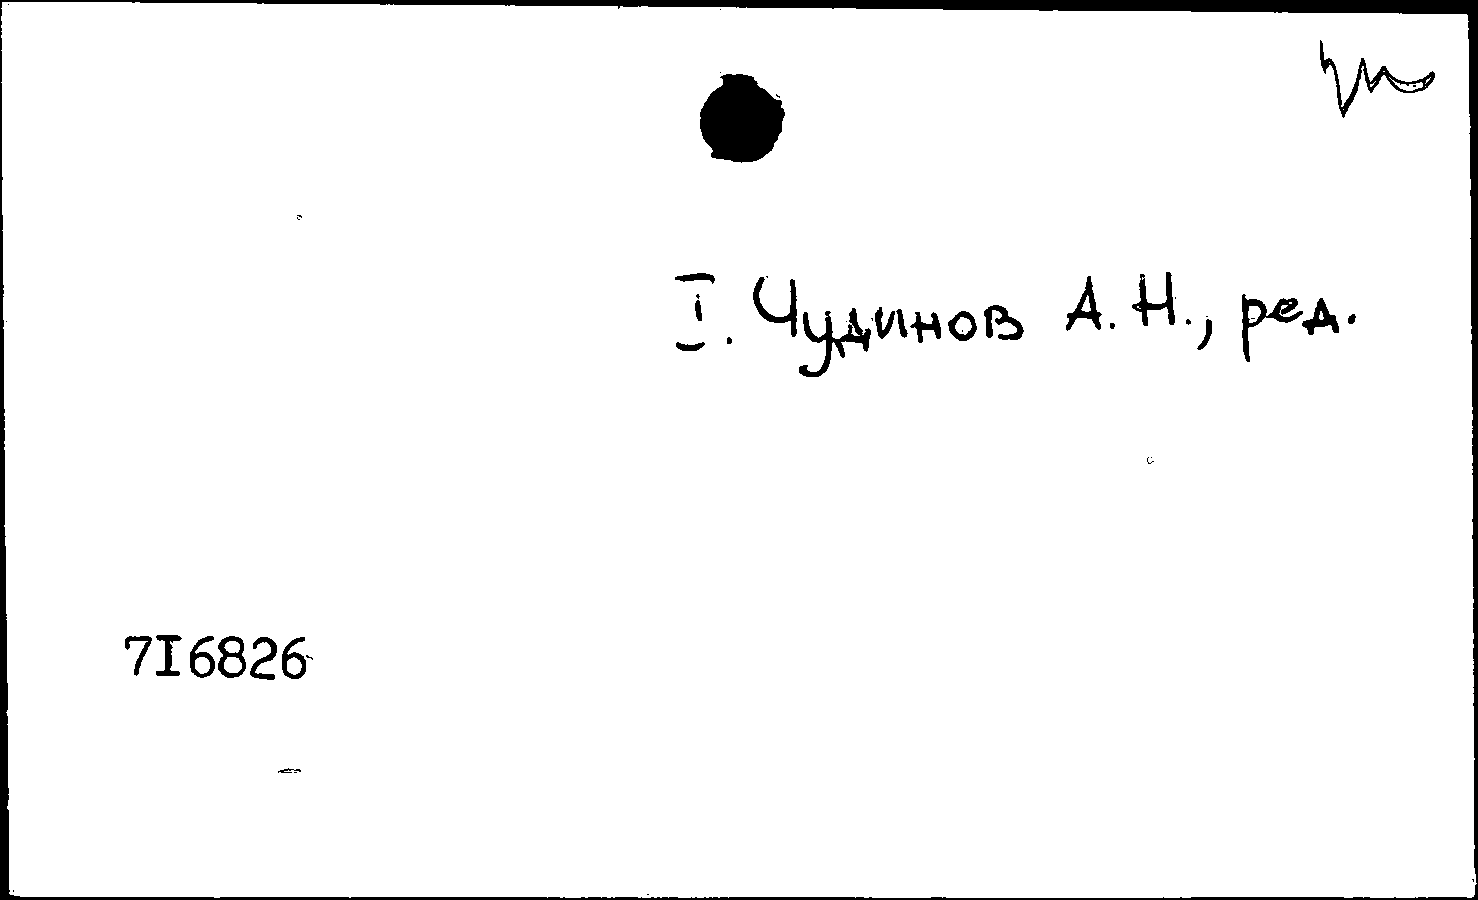 I. Чудинов А. Н., ред.
7I6826